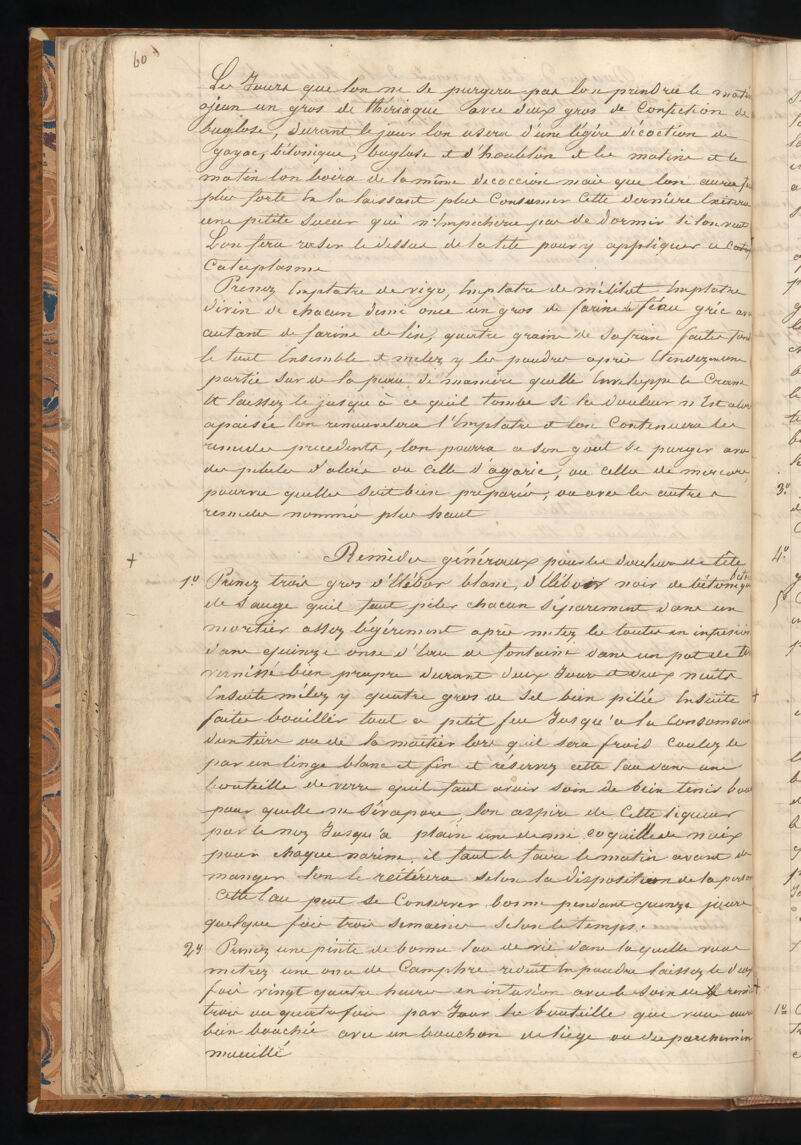 60
Les Jours que lon ne se purgera pas lon prendra le matin
ajeun un gros de thériaque avec deux gros de Confection de
buglose, durant le jour lon usera d'une légère décoction de
gayac, bétonique, buglose et d'houblon et les matine et le
matin lon boira de la même décoccion mais que lon aura
plus forte En la laissant plus Consumer Cette derniere
une petite sueur qui n'impechera pas de dormir si lon veut
Lon fera raser le dessus de la tête pour y appliquer ce
Cataplasme
Prenez Emplatre de vigo, Emplatre de mélilot Emplatre
divin de chacun demi once un gros de farine de féau gric
autant de farine de lin, quatre grains de Safran faites
le tout Ensemble et melez y les poudres après Etendez en une
partie sur de la peau de maniere quelle Enveloppe le Crane
Et laissez le jusqu'à ce quil tombe Si la douleur n'Est alors
apaisée lon renouvelera l'Emplatre et lon Continuera les
remedes precedents, lon pourra a son gout se purger avec
des pilules d'aloès ou celle d'agaric, ou celles de mercure
pourvu quelles soit bien préparée, ou avec les autres
remedes nommés plus haut
+ Remèdes généraux pour les douleur de tête
1º Prenez trois gros d'Ellébor blanc, d'Ellébor noir de bétonique
de Sauge quil faut piler chacun Séparement dans un
mortier assez légérement après metez le toutes en infusion
dans quinze onse d'Eau de fontaine dans un pot de
vernissé bien propre durant deux Jours et deux nuits
Ensuite mêlez y quatre gros de Sel bien pilée Ensuite
faites bouillir tout a petit feu Jusqu'a la Consomsion
d'un tiers ou de la moitier lors quil sera frois Coulez le
par un linge blanc et fin et réservez cette Eau dans une
bouteille de verre quil faut avoir soin de bien tenir
pour quelle ne S'évapore, lon aspire de Cette liqueur
par le nez Jusqu'a plain une demi coquille de noix
pour chaque narine, il faut le faire le matin avant de
manger lon le reitérera selon la disposition de la
Cette Eau peut se Conserver bonne pendant quinze jours
quelque fois trois semaines Selon le temps.
2º Prenez une pinte de bonne Eau de vie dans laquelle vous
metrez une once de Camphre reduit En poudre laissez le
fois vingt quatre heures en infusion avec le soin de
trois ou quatre fois par Jour la bouteille que vous
bien bouchée avec un bouchon de liège ou du parchemin
mouillé
3º
4º
1º